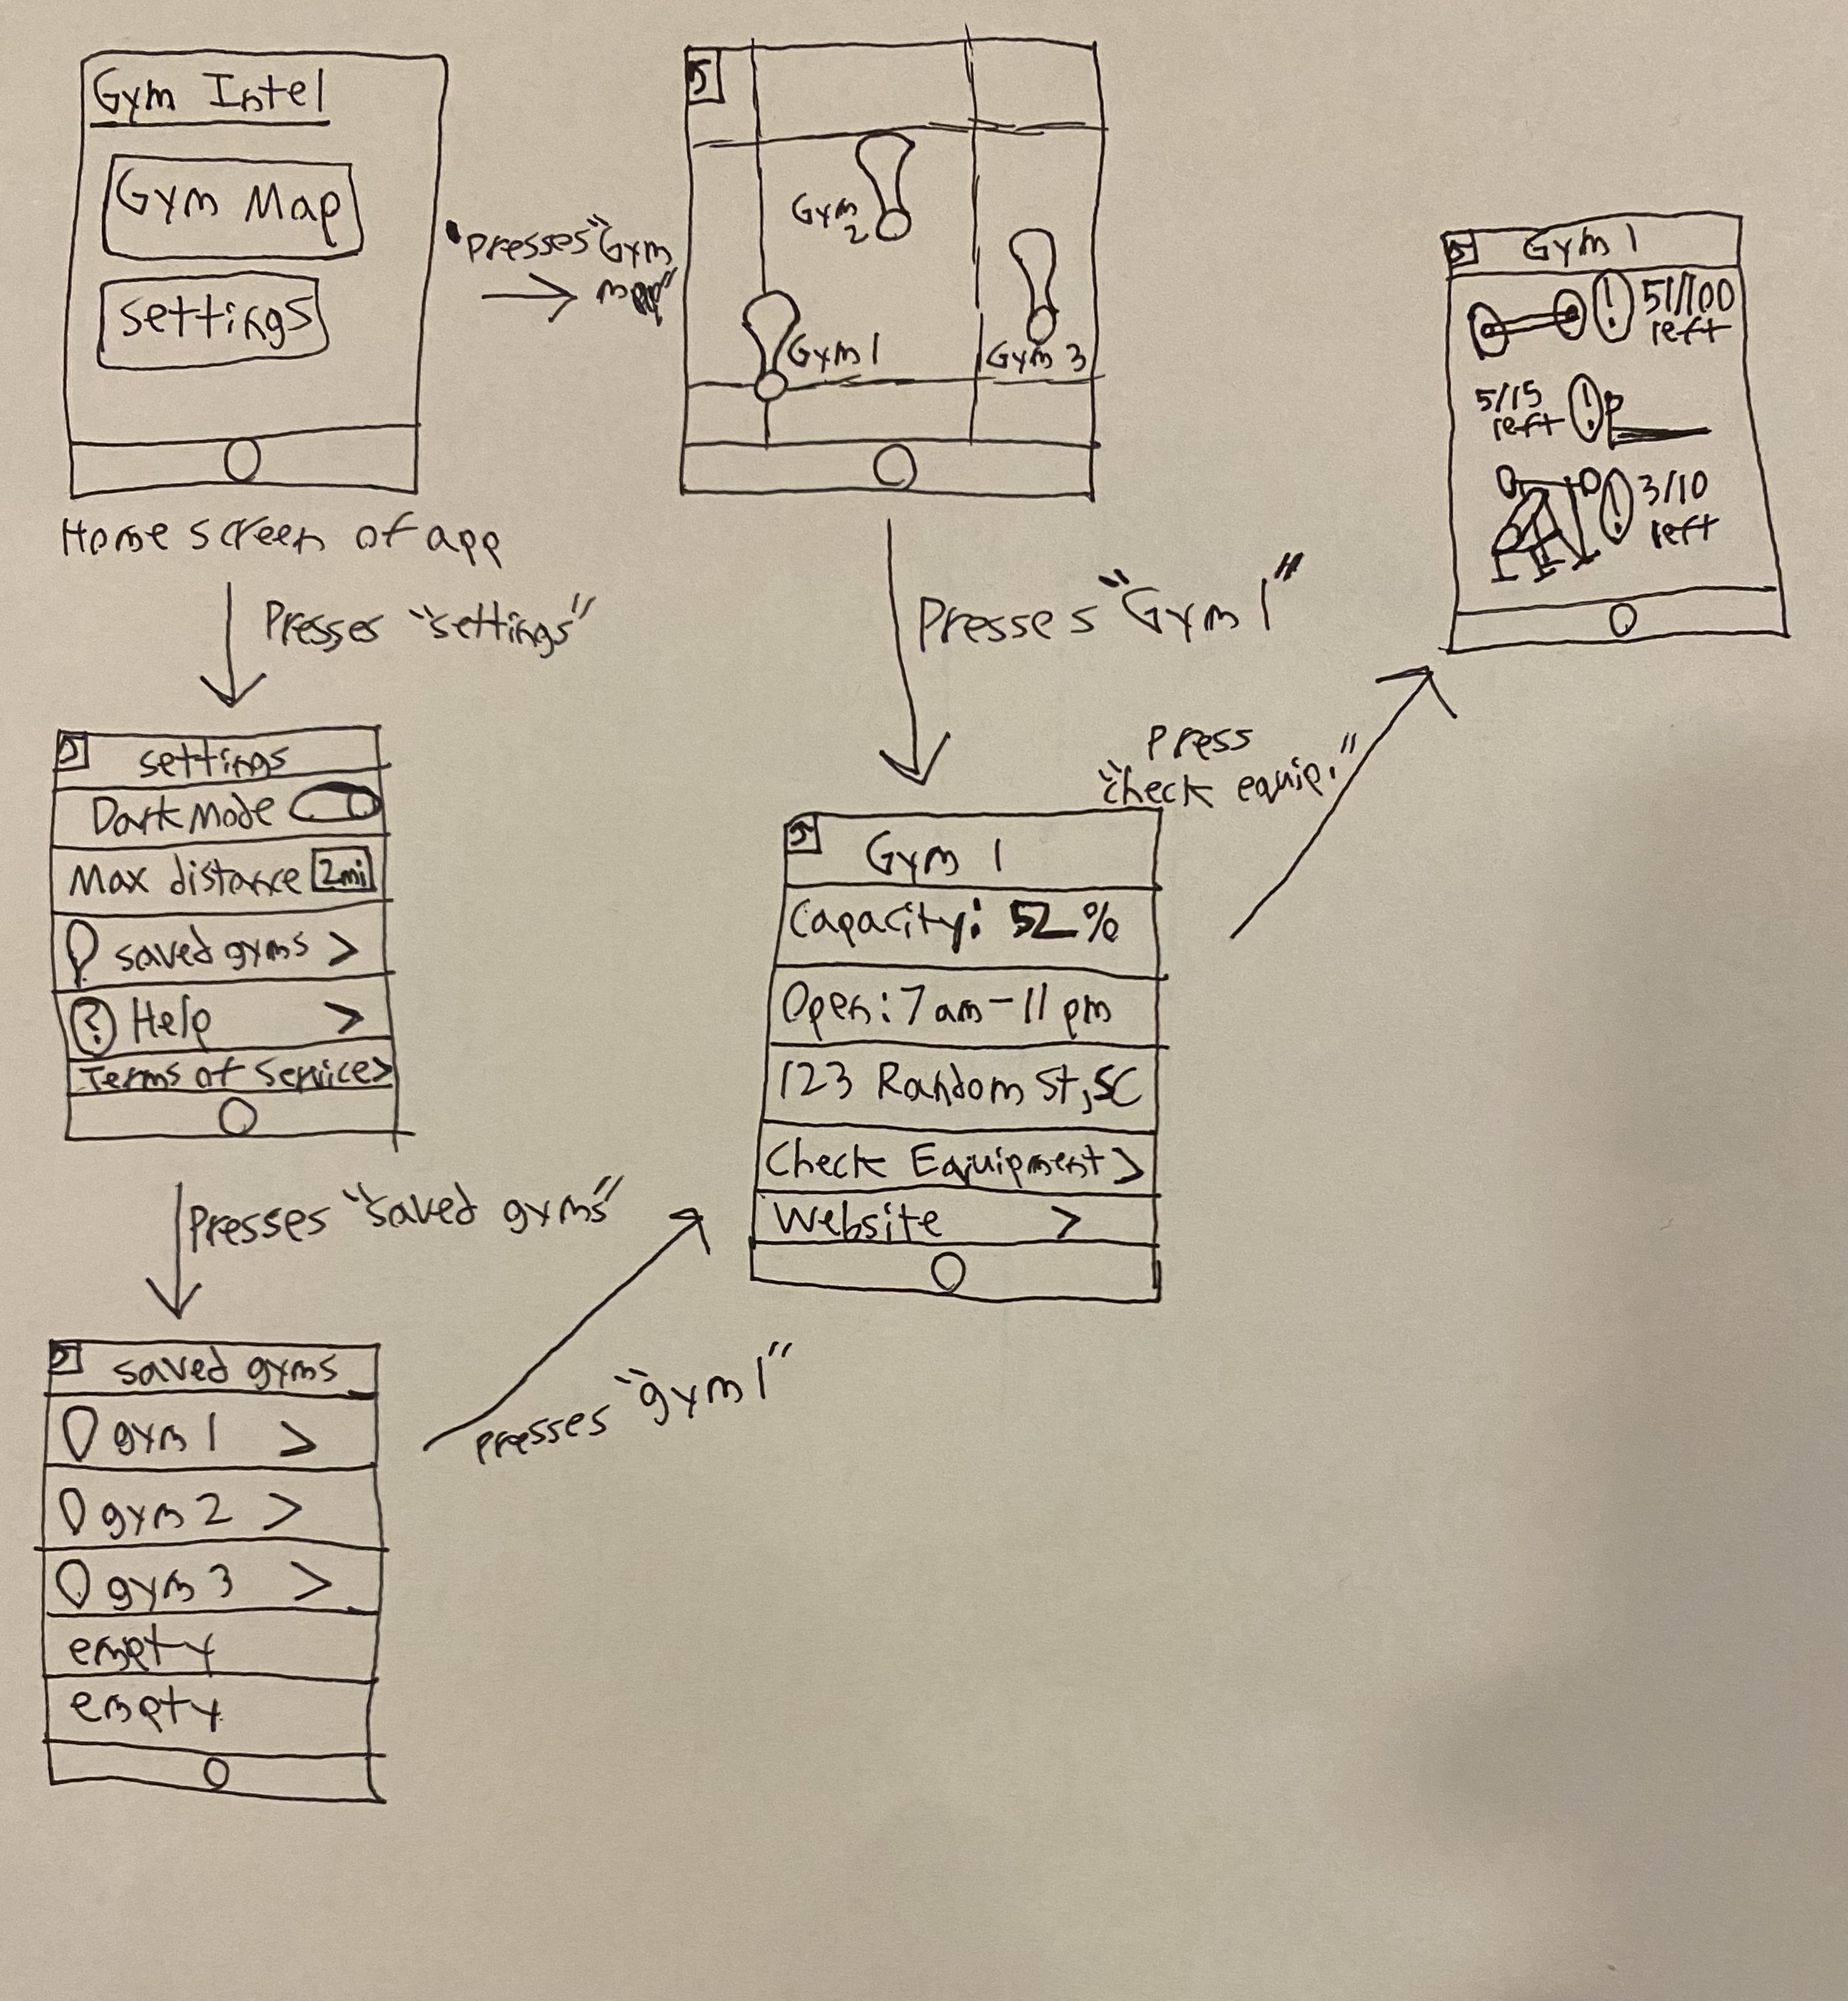 Gym Intel
Gym Map
settings
Home screen of app
Presses "Gym
map"
Gym
2
Gym 1
Gym 3
Presses "settings"
settings
Dark Mode
Max distance 2mi
saved gyms >
? Help >
Terms of Service >
Presses "saved gyms"
saved gyms
gym 1 >
gym 2 >
gym 3 >
empty
empty
presses "gym 1"
Presses "Gym 1"
Gym 1
Capacity: 52%
Open: 7am-11pm
123 Random St, SC
Check Equipment >
Website >
Press
"check equip."
Gym 1
! 51/100
left
5/15
left !
! 3/10
left